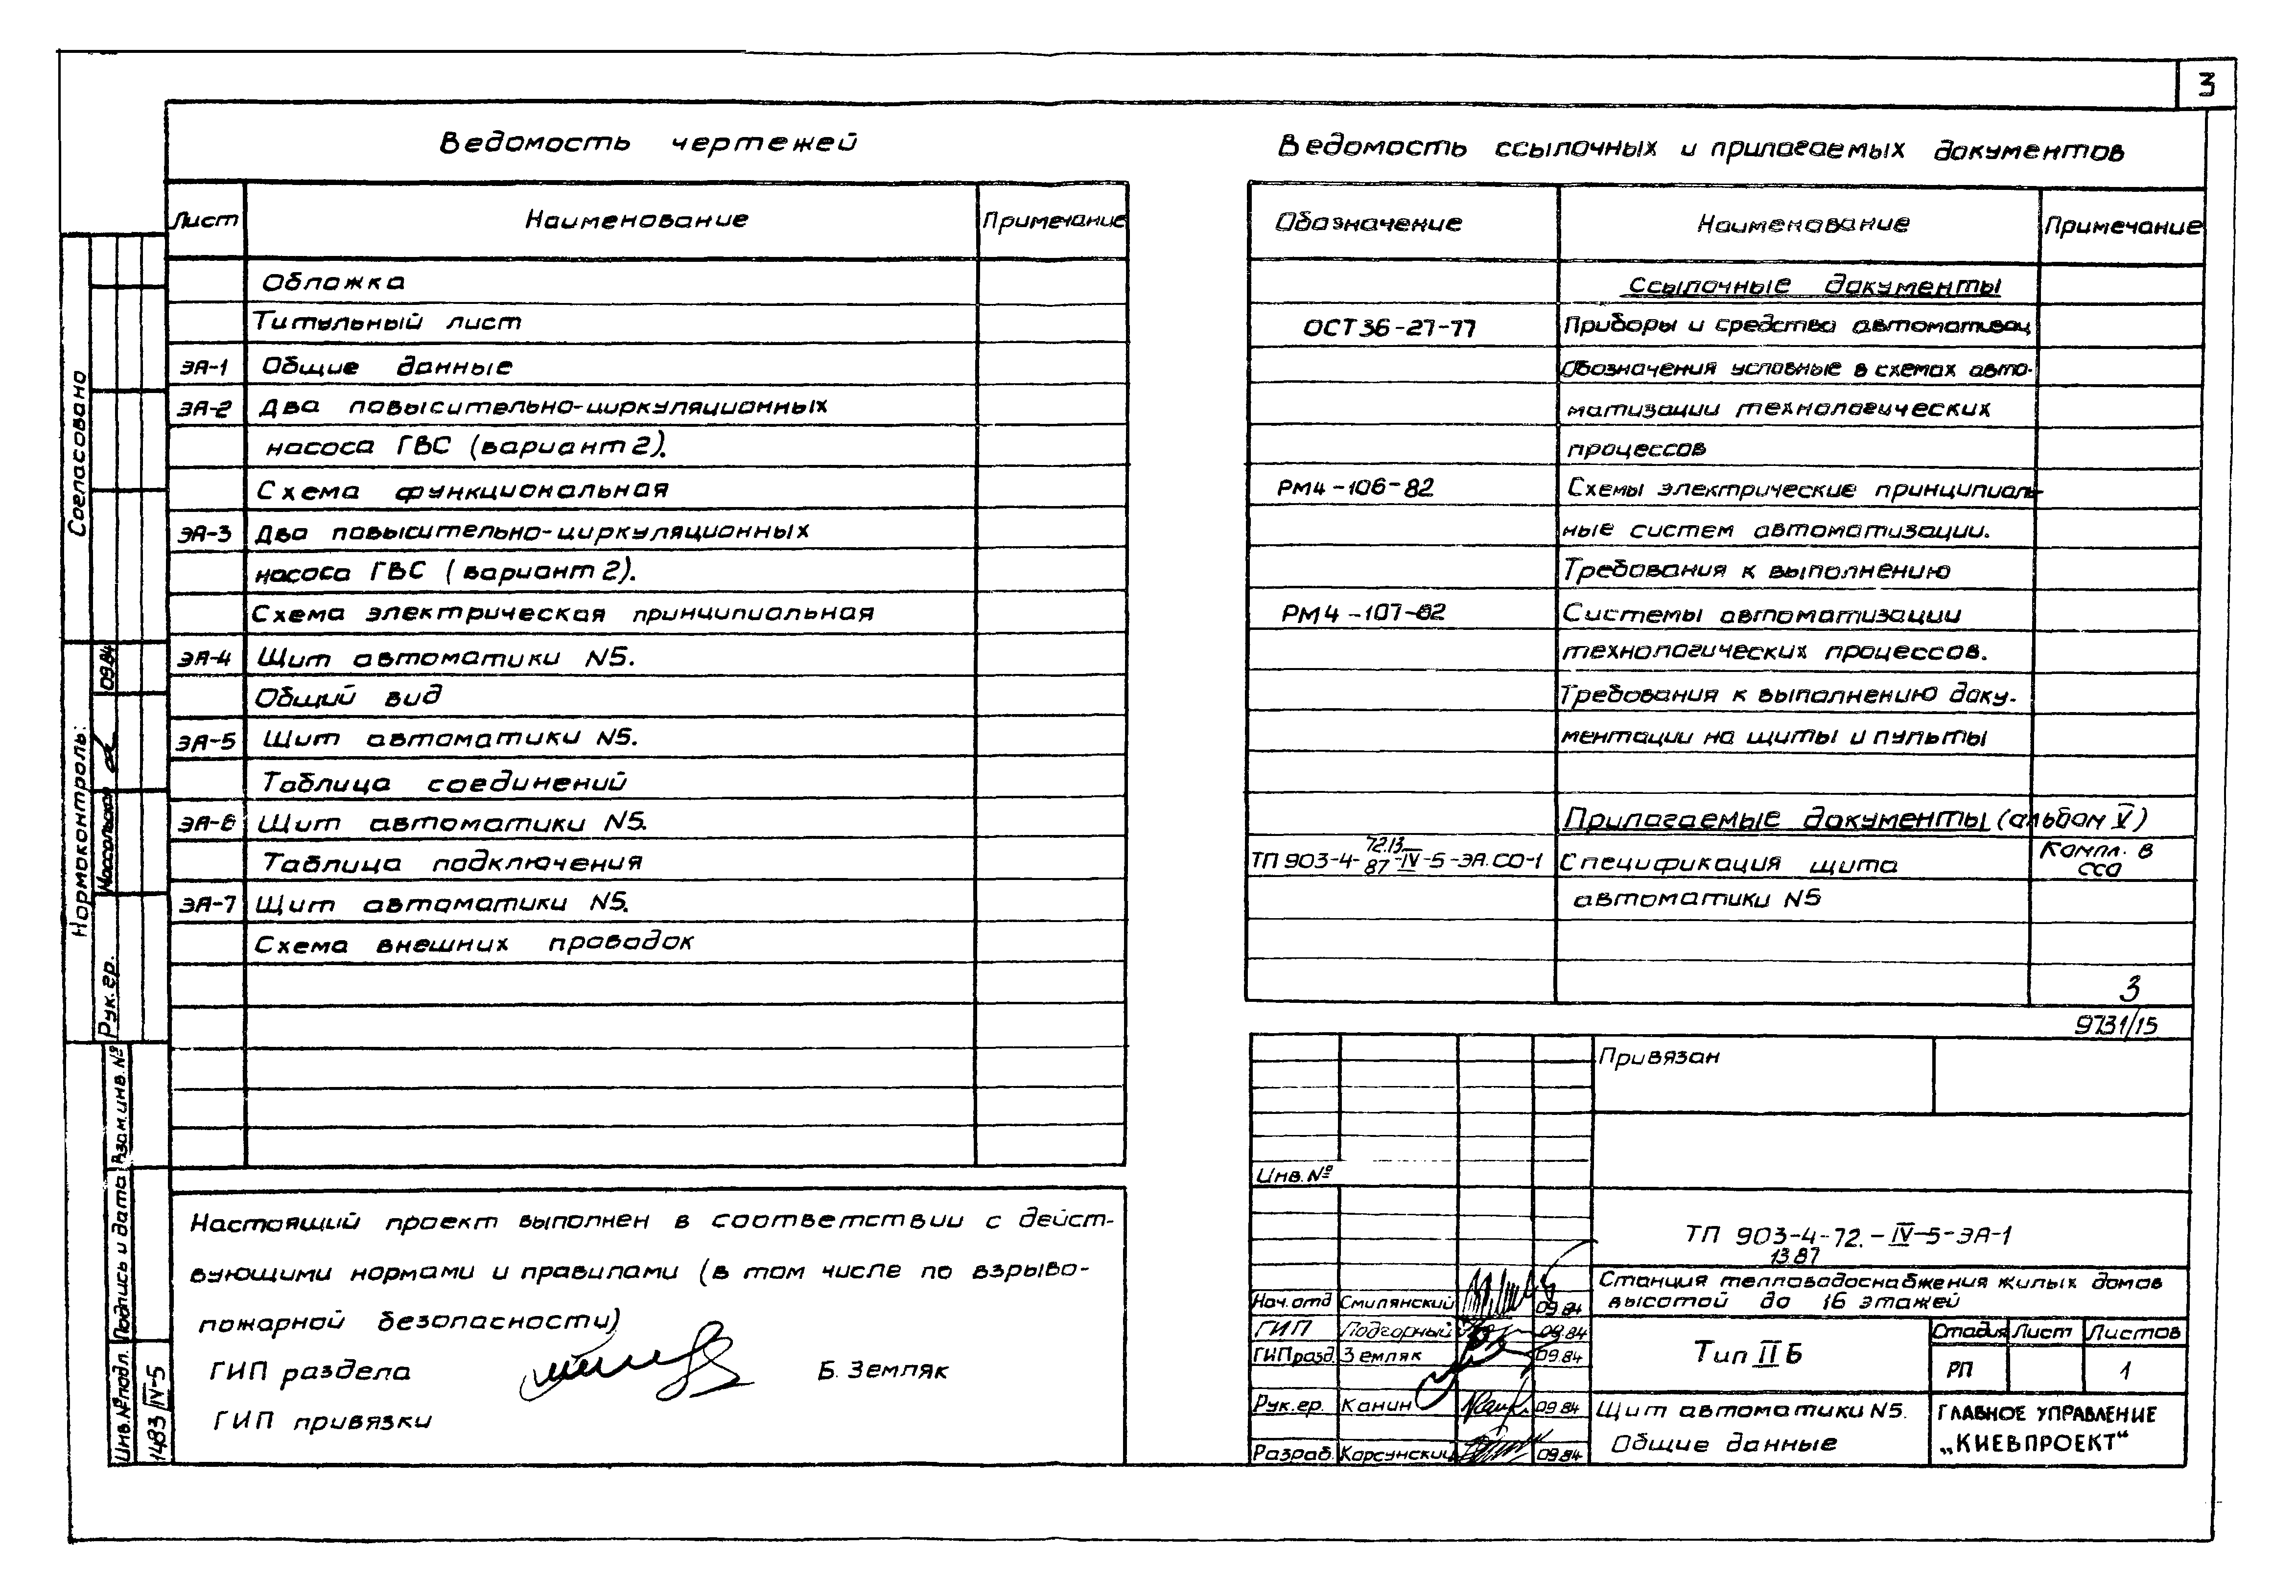 3
Ведомость чертежей
Лист Наименование Примечание
Обложка
Титульный лист
ЭА-1 Общие данные
ЭА-2 Два повысительно-циркуляционных
насоса ГВС (вариант 2).
Схема функциональная
ЭА-3 Два повысительно-циркуляционных
насоса ГВС (вариант 2).
Схема электрическая принципиальная
ЭА-4 Щит автоматики N5.
Общий вид
ЭА-5 Щит автоматики N5.
Таблица соединений
ЭА-6 Щит автоматики N5.
Таблица подключения
ЭА-7 Щит автоматики N5.
Схема внешних проводок
Настоящий проект выполнен в соответствии с дейст-
вующими нормами и правилами (в том числе по взрыво-
пожарной безопасности)
ГИП раздела Б. Земляк
ГИП привязки
Ведомость ссылочных и прилагаемых документов
Обозначение Наименование Примечание
Ссылочные документы
ОСТ 36-27-77 Приборы и средства автоматизац
Обозначения условные в схемах авто-
матизации технологических
процессов
РМ4-106-82 Схемы электрические принципиаль-
ные систем автоматизации.
Требования к выполнению
РМ4-107-82 Системы автоматизации
технологических процессов.
Требования к выполнению доку-
ментации на щиты и пульты
Прилагаемые документы (альбом V)
ТП 903-4-72.13.87-IV-5-ЭА.СО-1 Спецификация щита Компл. в ССО
автоматики N5
3
9731/15
Привязан
Инв. №
ТП 903-4-72.-IV-5-ЭА-1
13.87
Станция тепловодоснабжения жилых домов
высотой до 16 этажей
Нач. отд Смилянский 09.84
ГИП Подгорный 09.84
ГИП разд. Земляк 09.84
Рук. гр. Канин 09.84
Разраб. Корсунский 09.84
Тип II Б
Стадия Лист Листов
РП 1
Щит автоматики N5.
Общие данные
ГЛАВНОЕ УПРАВЛЕНИЕ
„КИЕВПРОЕКТ"
Согласовано
Нормоконтроль:
Рук. гр. 09.84
Взам. инв. №
Подпись и дата
Инв. № подл.
1483 IV-5